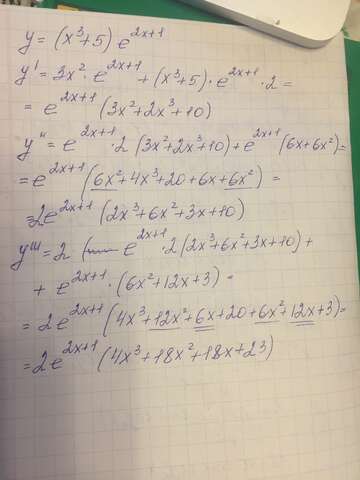 y = (x³+5) e^(2x+1)
y' = 3x² · e^(2x+1) + (x³+5) · e^(2x+1) · 2 =
= e^(2x+1) (3x²+2x³+10)
y'' = e^(2x+1) · 2 (3x²+2x³+10) + e^(2x+1) (6x+6x²) =
= e^(2x+1) (6x²+4x³+20+6x+6x²) =
= 2e^(2x+1) (2x³+6x²+3x+10)
y''' = 2 ( e^(2x+1) · 2 (2x³+6x²+3x+10) +
+ e^(2x+1) · (6x²+12x+3) =
= 2e^(2x+1) (4x³+12x²+6x+20+6x²+12x+3) =
= 2e^(2x+1) (4x³+18x²+18x+23)